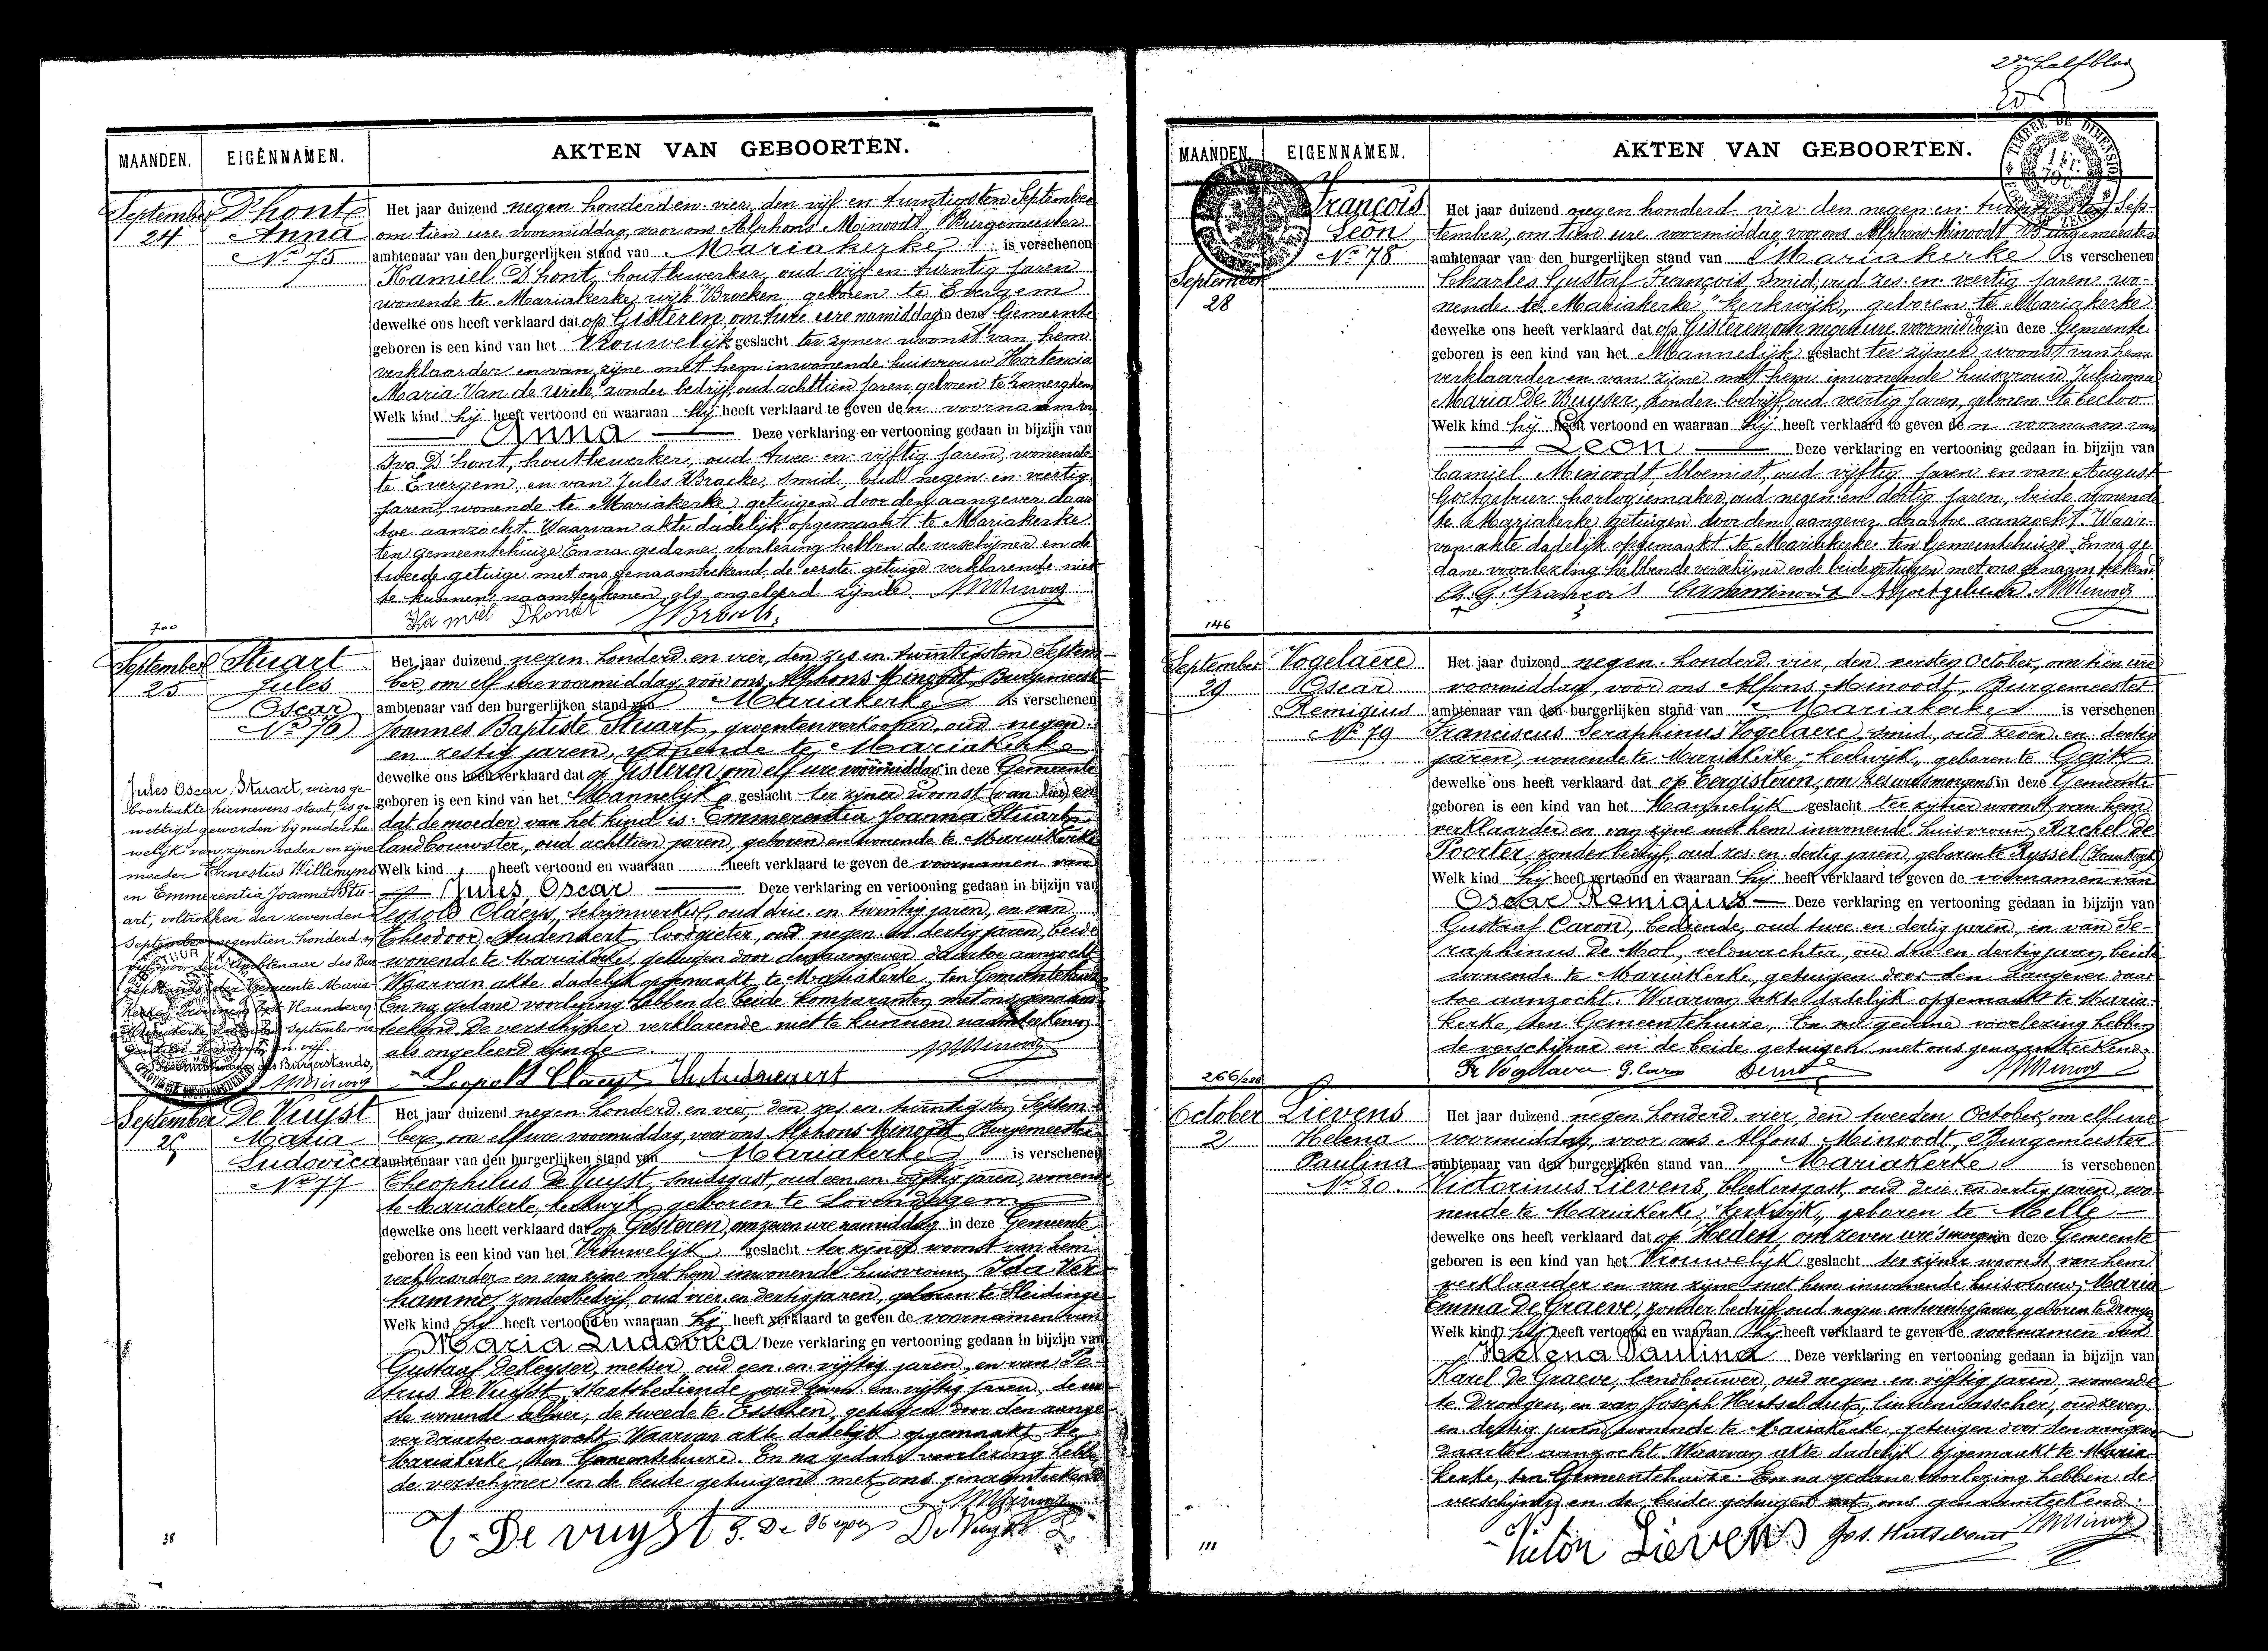 2de halfblad
AKTEN VAN GEBOORTEN.
MAANDEN. EIGENNAMEN.
September 24
D'hont
Anna
No 75
Het jaar duizend negen honderd en vier, den vijf en twintigsten September
om tien ure voormiddag, voor ons Alphons Minoodt, Burgemeester
ambtenaar van den burgerlijken stand van Mariakerke is verschenen
Kamiel D'hont, houtbewerker, oud vijf en twintig jaren
wonende te Mariakerke wijk Broeken, geboren te Evergem
dewelke ons heeft verklaard dat op Gisteren, om twee ure namiddag in deze Gemeente
geboren is een kind van het Vrouwelijk geslacht ter zijner woonst van hem
verklaarder en van zijne met hem inwonende huisvrouw Hortencia
Maria Van de Urele, zonder bedrijf, oud achttien jaren, geboren te Zomergem
Welk kind hij heeft vertoond en waaraan hij heeft verklaard te geven den voornaam van
Anna Deze verklaring en vertooning gedaan in bijzijn van
Ivo D'hont, houtbewerker, oud twee en vijftig jaren, wonende
te Evergem, en van Jules Bracke, smid, oud negen en veertig
jaren, wonende te Mariakerke, getuigen door den aangever daar
toe aanzocht. Waarvan akte dadelijk opgemaakt te Mariakerke
ten Gemeentehuize. En na gedane voorlezing hebben de verschijner en de
tweede getuige met ons genaamteekend, de eerste getuige verklarende niet
te kunnen naamteekenen als ongeleerd zijnde.
Kamiel Dhondt
700
September 25
Stuart
Jules
Oscar
No 76
Het jaar duizend negen honderd en vier, den zes en twintigsten Septem-
ber, om elf ure voormiddag, voor ons Alphons Minoodt, Burgemeester
ambtenaar van den burgerlijken stand van Mariakerke is verschenen
Joannes Baptiste Stuart, groentenverkooper, oud negen
en zestig jaren, wonende te Mariakerke
dewelke ons heeft verklaard dat op Gisteren, om elf ure voormiddag in deze Gemeente
geboren is een kind van het Mannelijk geslacht ter zijner woonst en
dat de moeder van het kind is Emmerentia Joanna Stuart
landbouwster, oud achttien jaren, geboren en wonende te Mariakerke
Welk kind heeft vertoond en waaraan heeft verklaard te geven de voornamen van
Jules Oscar Deze verklaring en vertooning gedaan in bijzijn van
Leopold Claeys, schrijnwerker, oud drie en twintig jaren, en van
Theodoor Audenaert, loodgieter, oud negen en dertig jaren, beide
wonende te Mariakerke, getuigen door den aangever daartoe aanzocht
Waarvan akte dadelijk opgemaakt te Mariakerke, ten Gemeentehuize
En na gedane voorlezing hebben de beide komparanten met ons genaam
teekend De verschijner verklarende niet te kunnen naamteekenen
als ongeleerd zijnde.
Leopold Claeys
Jules Oscar, Stuart, wiens ge-
boorteakte hiernevens staat, is ge
wettigd geworden bij nader hu
welijk van zijnen vader en zijne
moeder Ernestus Willemyns
en Emmerentia Joanna Stu-
art, voltrokken den zevenden
September negentien honderd
September 26
De Vuyst
Maria
Ludovica
No 77
Het jaar duizend negen honderd en vier, den zes en twintigsten Septem-
ber, om elf ure voormiddag, voor ons Alphons Minoodt, Burgemeester
ambtenaar van den burgerlijken stand van Mariakerke is verschenen
Theophilus De Vuyst, smidsgast, oud een en vijftig jaren, wonende
te Mariakerke, kerkwijk, geboren te Lovendegem
dewelke ons heeft verklaard dat op Gisteren, om zeven ure namiddag in deze Gemeente
geboren is een kind van het Vrouwelijk geslacht ter zijner woonst van hem
verklaarder en van zijne met hem inwonende huisvrouw Ida Ver
hamme, zonder bedrijf, oud vier en dertig jaren, geboren te Sleidinge
Welk kind hij heeft vertoond en waaraan hij heeft verklaard te geven de voornamen van
Maria Ludovica Deze verklaring en vertooning gedaan in bijzijn van
Gustaaf DeKeyser, metser, oud een en vijftig jaren, en van Pe
trus De Vuyst, staatsbediende, oud en vijftig jaren, de eer
ste wonende alhier, de tweede te Esschen, getuigen door den aange
ver daartoe aanzocht. Waarvan akte dadelijk opgemaakt te
Mariakerke, ten Gemeentehuize. En na gedane voorlezing hebben
de verschijner en de beide getuigen met ons genaamteekend
T. De vuyst De Vuyst
38
AKTEN VAN GEBOORTEN.
MAANDEN. EIGENNAMEN.
TIMBRE DE DIMENSION
September 28
François
Leon
No 78
Het jaar duizend negen honderd vier den negen en twintigsten Sep-
tember, om tien ure voormiddag, voor ons Alphons Minoodt Burgemeester
ambtenaar van den burgerlijken stand van Mariakerke is verschenen
Charles Gustaf François, smid, oud zes en veertig jaren wo-
nende te Mariakerke "kerkwijk", geboren te Mariakerke
dewelke ons heeft verklaard dat op Gisteren, om negen ure voormiddag in deze Gemeente
geboren is een kind van het Mannelijk geslacht ter zijner woonst van hem
verklaarder en van zijne met hem inwonende huisvrouw Julianna
Maria De Buyser, zonder bedrijf, oud veertig jaren, geboren te Eecloo
Welk kind hij heeft vertoond en waaraan hij heeft verklaard te geven den voornaam van
Leon Deze verklaring en vertooning gedaan in bijzijn van
Camiel Minoodt, bloemist, oud vijftig jaren en van August
Goetgebuer horlogiemaker, oud negen en dertig jaren, beide wonende
te Mariakerke getuigen door den aangever daartoe aanzocht. Waar-
van akte dadelijk opgemaakt te Mariakerke ten Gemeentehuize. En na ge
dane voorlezing hebben de verschijner en de beide getuigen met ons genaamteekend
Ch. G. François
146
September 29
Vogelaere
Oscar
Remigius
No 79
Het jaar duizend negen honderd vier, den eersten October, om tien ure
voormiddag, voor ons Alfons Minoodt, Burgemeester
ambtenaar van den burgerlijken stand van Mariakerke is verschenen
Franciscus Seraphinus Vogelaere, smid, oud zeven en dertig
jaren, wonende te Mariakerke, kerkwijk, geboren te
dewelke ons heeft verklaard dat op Eergisteren, om zes ure 's morgens in deze Gemeente
geboren is een kind van het Mannelijk geslacht ter zijner woonst van hem
verklaarder en van zijne met hem inwonende huisvrouw, Rachel De
Poorter, zonder bedrijf, oud zes en dertig jaren, geboren te Ryssel (Frankrijk)
Welk kind hij heeft vertoond en waaraan hij heeft verklaard te geven de voornamen van
Oscar Remigius Deze verklaring en vertooning gedaan in bijzijn van
Gustaaf Caron, bediende, oud twee en dertig jaren, en van Se-
raphinus De Mol, veldwachter, oud drie en dertig jaren, beide
wonende te Mariakerke, getuigen door den aangever daar
toe aanzocht. Waarvan akte dadelijk opgemaakt te Maria-
kerke, ten Gemeentehuize, En na gedane voorlezing hebben
de verschijner en de beide getuigen met ons genaamteekend.
Fr Vogelaere G. Caron
266/200
October 2
Lievens
Helena
Paulina
No 80.
Het jaar duizend negen honderd vier, den tweeden October, om elf ure
voormiddag, voor ons Alfons Minoodt, Burgemeester
ambtenaar van den burgerlijken stand van Mariakerke is verschenen
Victorinus Lievens, bleekersgast, oud drie en dertig jaren, wo-
nende te Mariakerke, "kerkwijk, geboren te Melle
dewelke ons heeft verklaard dat op Heden, om zeven ure 's morgens in deze Gemeente
geboren is een kind van het Vrouwelijk geslacht ter zijner woonst van hem
verklaarder en van zijne met hem inwonende huisvrouw, Maria
Emma De Graeve, zonder bedrijf, oud negen en twintig jaren, geboren te Drongen
Welk kind hij heeft vertoond en waaraan hij heeft verklaard te geven de voornamen van
Helena Paulina Deze verklaring en vertooning gedaan in bijzijn van
Karel De Graeve, landbouwer, oud negen en vijftig jaren, wonende
te Drongen, en van Joseph Hutsebaut, linnenwasscher, oud zeven
en dertig jaren, wonende te Mariakerke, getuigen door den aangever
daartoe aanzocht. Waarvan akte dadelijk opgemaakt te Maria-
kerke, ten Gemeentehuize. En na gedane voorlezing hebben de
verschijner en de beide getuigen met ons genaamteekend.
Victor Lievens Jos. Hutsebaut
111